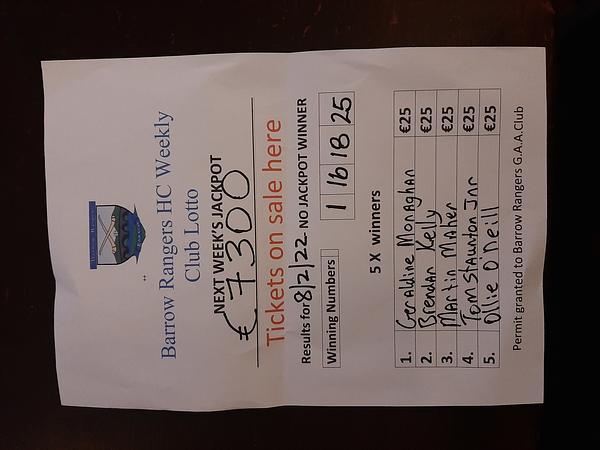 Barrow Rangers HC Weekly
Club Lotto
NEXT WEEK'S JACKPOT
€7300
Tickets on sale here
Results for 8/2/22 NO JACKPOT WINNER
Winning Numbers 1 16 18 25
5 X winners
1. Geraldine Monaghan €25
2. Brendan Kelly €25
3. Martin Maher €25
4. Tom Staunton Jnr €25
5. Ollie O'Neill €25
Permit granted to Barrow Rangers G.A.A.Club